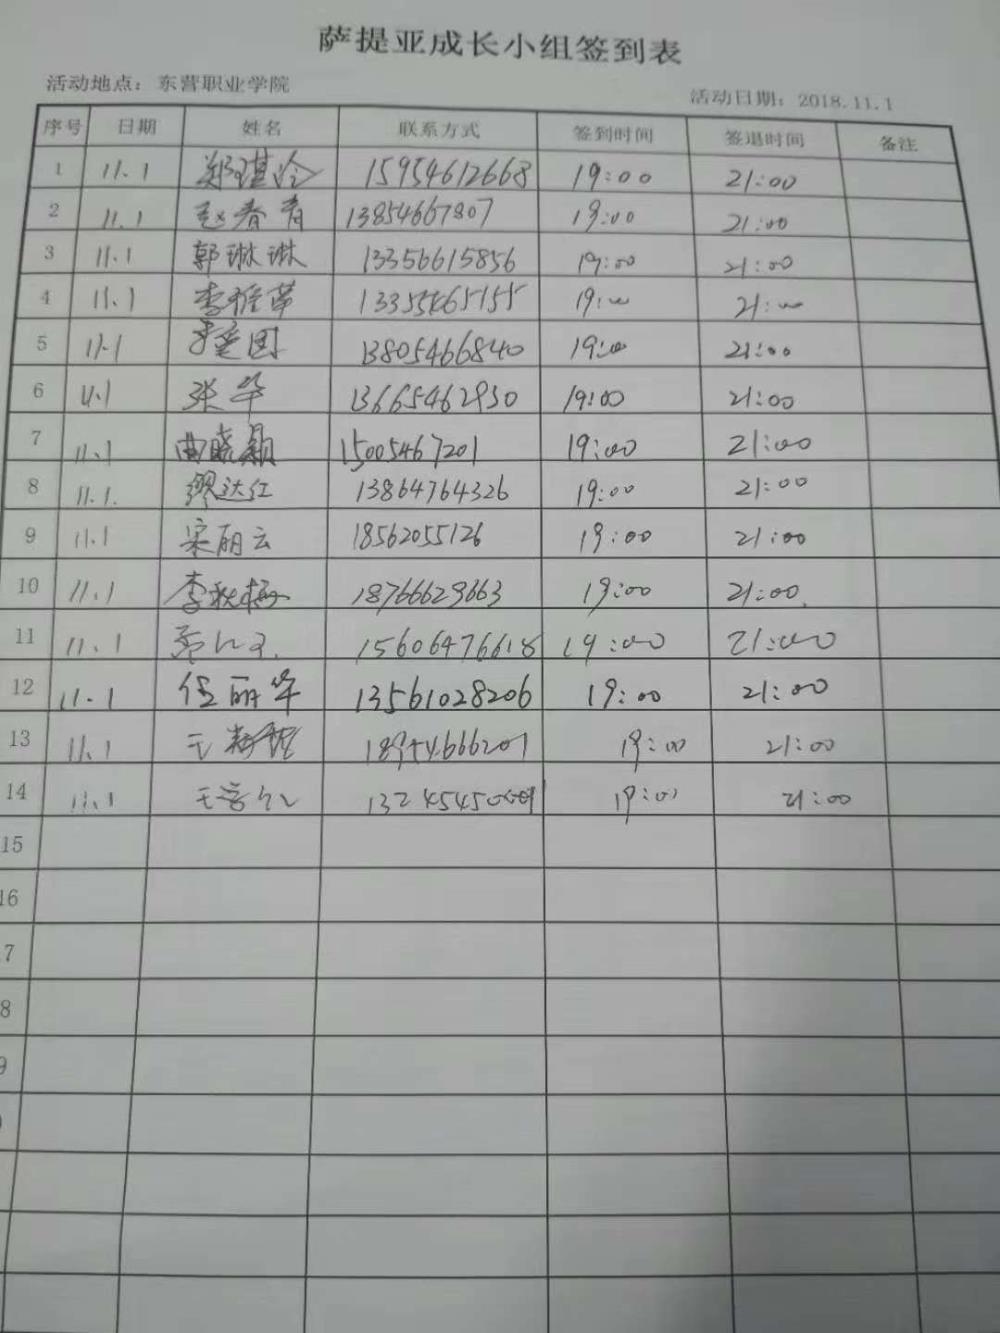 萨提亚成长小组签到表
活动地点：东营职业学院 活动日期：2018.11.1
序号 日期 姓名 联系方式 签到时间 签退时间 备注
1 11.1 郑琪冷 15954612668 19:00 21:00
2 11.1 赵春青 13854667807 19:00 21:00
3 11.1 郭琳琳 13356615856 19:00 21:00
4 11.1 李雅苹 19:00 21:00
5 11.1 13805466840 19:00 21:00
6 11.1 张华 13665462930 19:00 21:00
7 11.1 曲晓颖 15005467201 19:00 21:00
8 11.1. 缪达红 13864764326 19:00 21:00
9 11.1 宋丽云 18562055126 19:00 21:00
10 11.1 李秋梅 18766629663 19:00 21:00
11 11.1 15606476618 19:00 21:00
12 11.1 任丽华 13561028206 19:00 21:00
13 11.1 王 18954666201 19:00 21:00
14 11.1 王 19:00 21:00
15
16
7
8
9